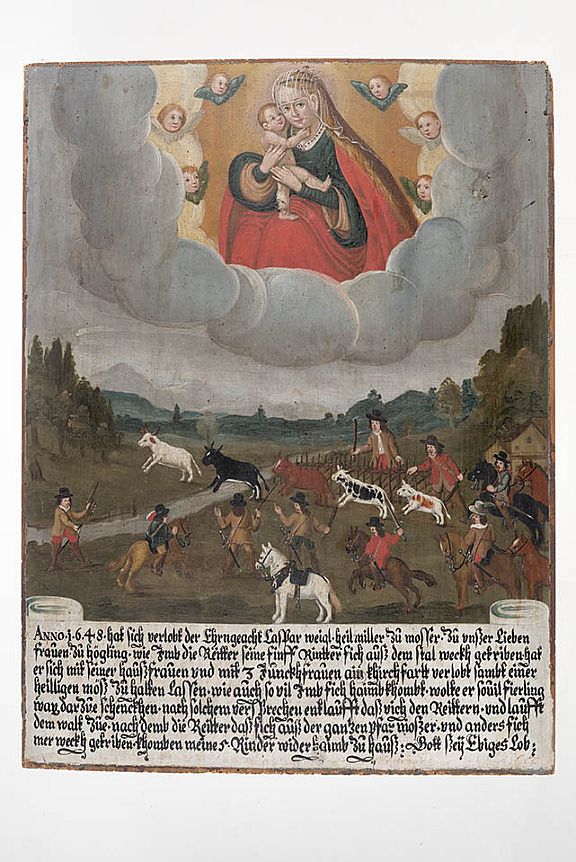 ANNO·1·6·4·8·hat sich verlobt der Ehrngeacht Caspar weigl·heil miller Zu mosser·Zu vnßer Lieben
frauen Zu högling·wie Jmb die Reitter seine finff Rintter sich auß dem stal weckh getriben·hat
er sich mit seiner haußfrauen vnd mit 3 Junckhfrauen ain khirchfartt verlobt sambt einer
heiligen moß Zu halten Lassen·wie auch so vil Jmb sich haimb khombt·wolte er souil fierling
dar Zue schenckhen·nach solchem versprechen entlaufft daß vich den Reittern·vnd laufft
dem walt Zue·nach demb die Reitter daß sich auß der ganzen pfar moßer·vnd anders sich
mer weckh getriben·khomben meine 5 Rinder wider haimb Zu hauß: Gott seÿ Ebiges Lob: